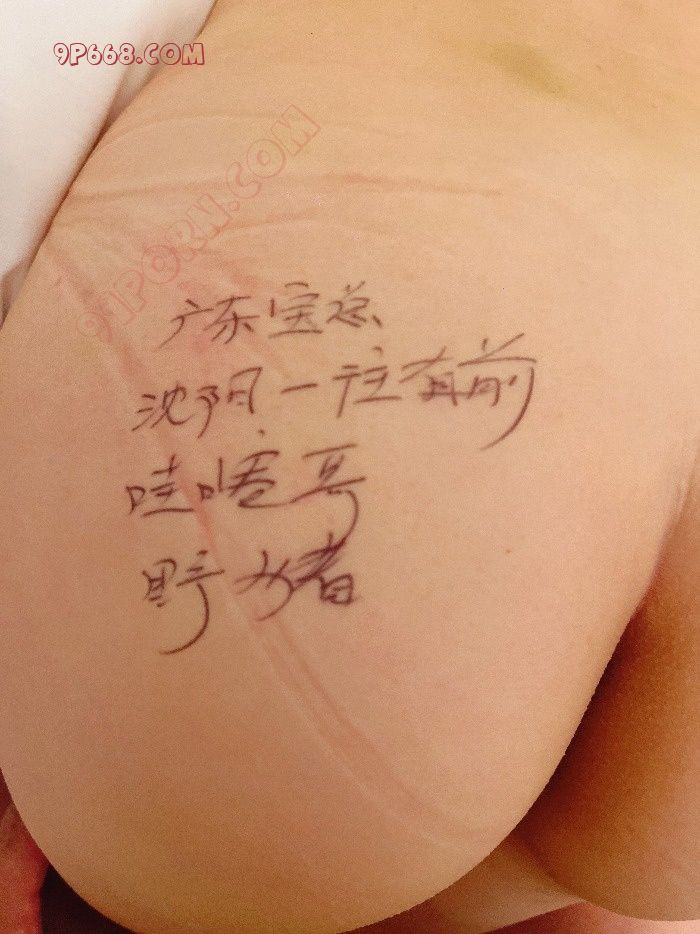 9P668.COM
91PORN.COM
广东宝总
沈阳一往有前
哇塞哥
野猪